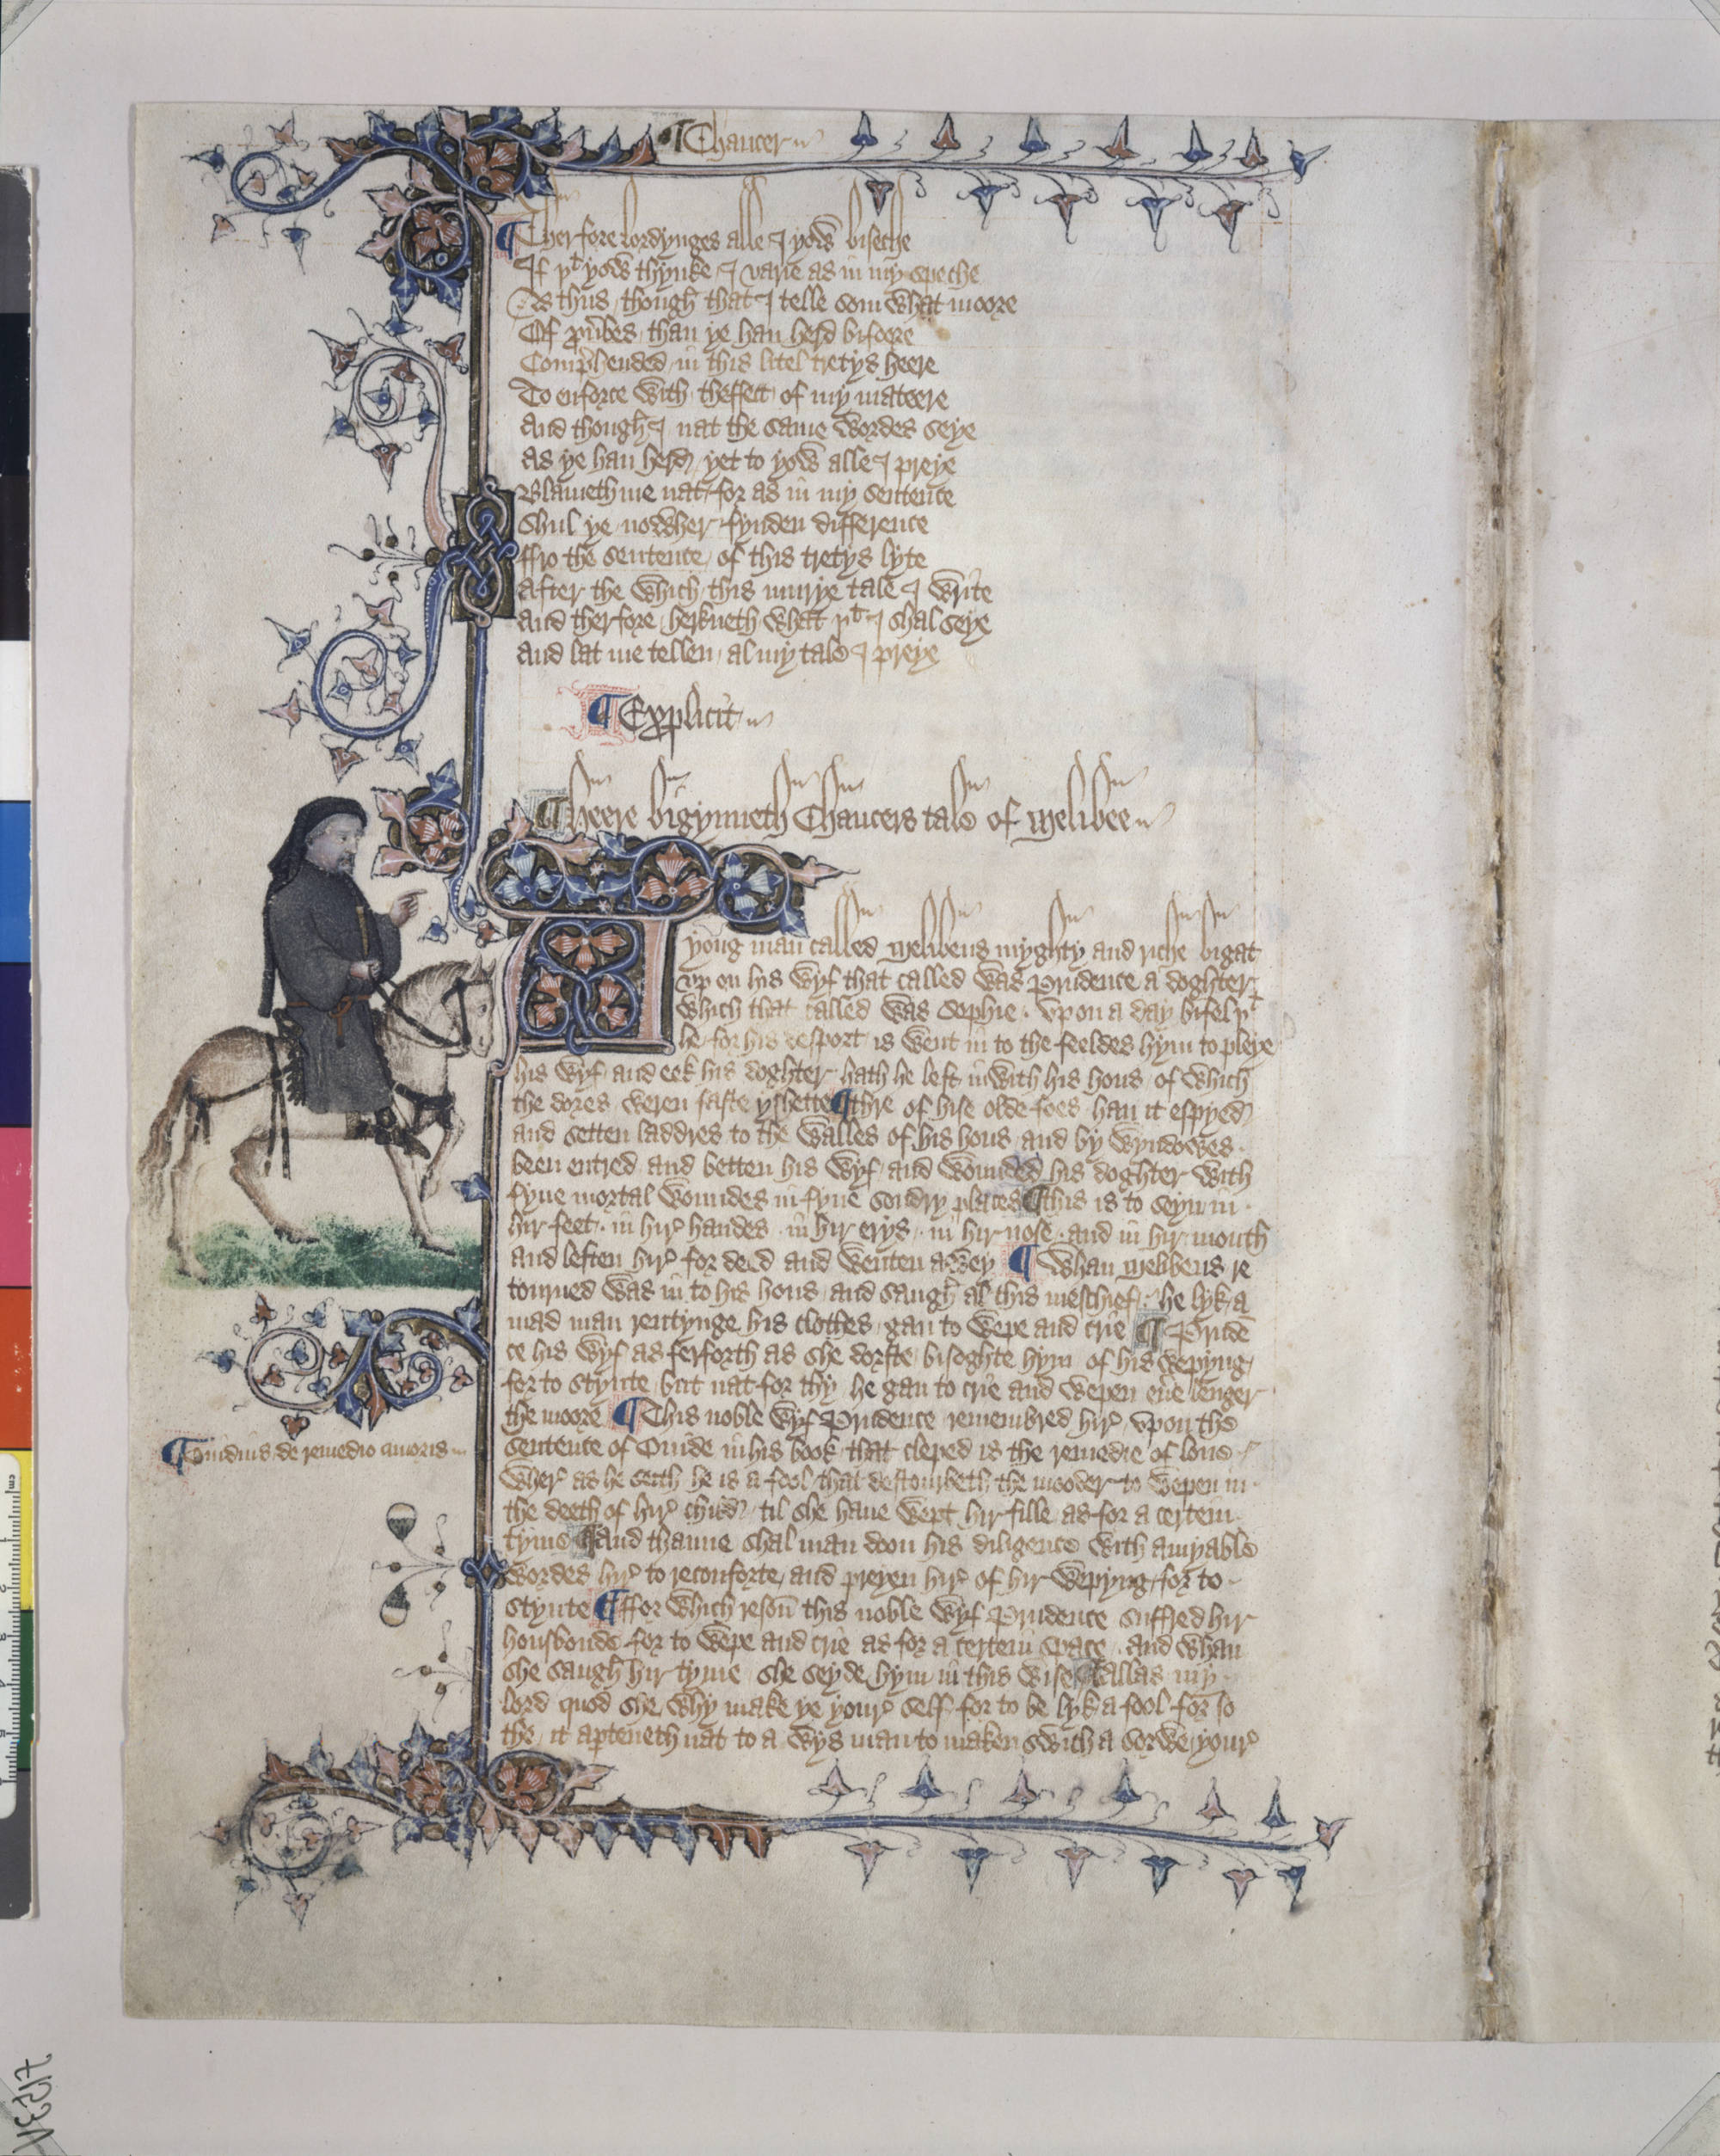 ¶ Chaucer
¶ Therfore lordynges alle I yow biseche
If þt yow thynke I varie as in my speche
As thus though that I telle som what moore
Of prouerbes than ye han herd bifoore
Comprehended in this litel tretys heere
To enforce with theffect of my mateere
And though I nat the same wordes seye
As ye han herd yet to yow alle I preye
Blameth me nat for as in my sentence
Shul ye nowher fynden difference
ffro the sentence of this tretys lyte
After the which this murye tale I write
And therfore herkneth what þt I shal seye
And lat me tellen al my tale I preye
¶ Explicit
¶ Heere bigynneth Chaucers tale of Melibee
A yong man called Melibeus myghty and riche bigat
vp on his wyf that called was Prudence a doghter
which that called was Sophie . vpon a day bifel þt
he for his desport is went in to the feeldes hym to pleye
his wyf and eek his doghter hath he left inwith his hous of which
the dores weren faste yshette ¶ thre of hise olde foes han it espyed
and setten laddres to the walles of his hous and by wyndowes
been entred and betten his wyf and wounded his doghter with
fyue mortal woundes in fyue sondry places ¶ this is to seyn in
hir feet . in hir handes . in hir erys . in hir nose . and in hir mouth
and leften hir for deed and wenten awey ¶ Whan Melibeus re
tourned was in to his hous and saugh al this meschief he lyk a
mad man rentynge his clothes gan to wepe and crie ¶ Pruden
ce his wyf as ferforth as she dorste bisoghte hym of his wepyng
for to stynte but nat for thy he gan to crie and wepen euere lenger
the moore ¶ This noble wyf Prudence remembred hir vpon the
sentence of Ouide in his book that cleped is the remedie of loue
¶ Ouidius de remedio amoris
Wher as he seith he is a fool that destourbeth the mooder to wepen in
the deeth of hir child til she haue wept hir fille as for a certein
tyme ¶ And thanne shal man doon his diligence with amyable
wordes hir to reconforte and preyen hir of hir wepyng for to
stynte ¶ ffor which resoun this noble wyf Prudence suffred hir
housbonde for to wepe and crie as for a certein space . and whan
she saugh hir tyme she seyde hym in this wise ¶ allas my
lord quod she why make ye your self for to be lyk a fool for so
the it aperteneth nat to a wys man to maken swich a sorwe your